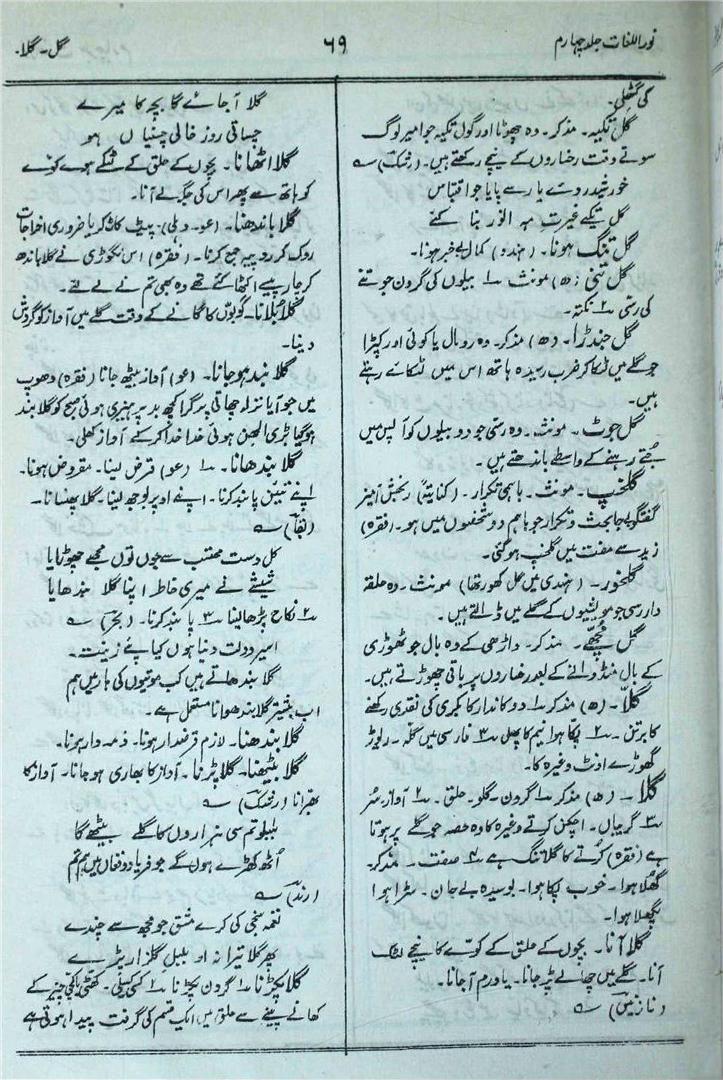 نور اللغات جلد چہارم
۶۹
گل ۔ گلا ۔
کی گٹھلی۔
گل تکیہ ۔ مذکر ۔ وہ چھوٹا اور گول تکیہ جو امیر لوگ
سوتے وقت رخساروں کے نیچے رکھتے ہیں۔ (رشک) ؎
خورشید روئے یار سے پایا جو اقتباس
گل تکیے غیرتِ مہ انور بنا گئے
گل تنگ ہونا ۔ (ہندو) کمال بے خبر ہونا۔
گل تنی (ھ) مونث ۱؎ بیلوں کی گردن جوتنے
کی رسّی ۲؎ نکتہ۔
گل جندڑا ۔ (ھ) مذکر ۔ وہ رومال یا کوئی اور کپڑا
جو گلے میں لٹکا کر ضرب رسیدہ ہاتھ اس میں لٹکائے رہتے
ہیں۔
گل جوٹ ۔ مونث ۔ وہ رسّی جو دو بیلوں کو آپس میں
جُتے رہنے کے واسطے باندھتے ہیں۔
گلخپ ۔ مونث ۔ باہمی تکرار ۔ (کنایۃً) رنجش آمیز
گفتگو بیجا بحث و تکرار جو باہم دو شخصوں میں ہو ۔ (فقرہ)
زید سے مفت میں گلخپ ہو گئی۔
گلخور ۔ (ہندی میں گل کھور تھا) مونث ۔ وہ حلقہ
دار رسی جو مویشیوں کے گلے میں ڈالتے ہیں۔
گل مچھے ۔ مذکر ۔ داڑھی کے وہ بال جو ٹھوڑی
کے بال منڈوانے کے بعد رخساروں پر باقی چھوڑتے ہیں۔
گلّا ۔ (ھ) مذکر ۱؎ دوکاندار کا بکری کی نقدی رکھنے
کا برتن ۔ ۲؎ پکا ہوا نیم کا پھل ۳؎ فارسی میں گلّہ ۔ ریوڑ
گھوڑے اونٹ وغیرہ کا۔
گلا ۔ (ھ) مذکر ۱؎ گردن ۔ گلو ۔ حلق ۔ ۲؎ آواز ۔ سُر
۳؎ گریباں ۔ اچکن کرتے وغیرہ کا وہ حصہ جو گلے پر ہوتا
ہے (فقرہ) کُرتے کا گلا تنگ ہے ۴؎ صفت ۔ مذکر ۔
گھُلا ہوا ۔ خوب پکا ہوا ۔ بوسیدہ بے جان ۔ سڑا ہوا
پگھلا ہوا۔
گلا آنا ۔ بچوں کے حلق کے کوّے کا نیچے لٹک
آنا ۔ گلے میں چھالے پڑ جانا ۔ یا ورم آ جانا۔
(نازنین) ؎
گلا آ جائے گا بچہ کا میرے
چساتی روز خالی چنیاں ہو
گلا اٹھانا ۔ بچوں کے حلق کے لٹکے ہوئے کوّے
کو ہاتھ سے پھر اس کی جگہ لے آنا۔
گلا باندھنا ۔ (عو ۔ دہلی) پیٹ کاٹ کر یا ضروری اخراجات
روک کر روپیہ جمع کرنا ۔ (فقرہ) اس نگوڑی نے گلا باندھ
کر چار پیسے اکٹھا کئے تھے وہ بھی تم نے لے لئے۔
گلا بُلانا ۔ گویّوں کا گانے کے وقت گلے میں آواز کو گردش
دینا۔
گلا بند ہو جانا ۔ (عو) آواز بیٹھ جانا (فقرہ) دھوپ
میں جو آیا نزلہ چھاتی پر گرا کچھ بد پرہیزی ہوئی صبح کو گلا بند
ہو گیا بڑی الجھن ہوئی خدا خدا کر کے آواز کھلی۔
گلا بندھانا ۔ ۱؎ (عو) قرض لینا ۔ مقروض ہونا۔
اپنے تئیں پابند کرنا ۔ اپنے اوپر بوجھ لینا ۔ گلا پھنسانا ۔
(لقا) ؎
کل دست محتسب سے جوں توں مجھے چھڑایا
شیشے نے میری خاطر اپنا گلا بندھایا
۲؎ نکاح پڑھا لینا ۳؎ پابند کرنا ۔ (بحر) ؎
اسیر دولت دنیا ہوں کیا پئے زینت ۔
گلا بندھاتے ہیں کب موتیوں کی ہار میں ہم
اب بیشتر گلا بندھوانا مستعمل ہے۔
گلا بندھنا ۔ لازم قرضدار ہونا ۔ ذمہ دار ہونا۔
گلا بیٹھنا ۔ گلا پڑنا ۔ آواز کا بھاری ہو جانا ۔ آواز کا
بھرانا (رشک) ؎
بلبلو تم سی ہزاروں کا گلا بیٹھے گا
اُٹھ کھڑے ہوں گے جو فریاد و فغاں میں ہم تم
(رند) ؎
نغمہ سنجی کی کرے مشق جو مجھ سے چندے
پھر گلا تیرا نہ او بلبل گلزار پڑے
گلا پکڑنا ۱؎ گردن پکڑنا ۲؎ کسی کسیلی ۔ کھٹی یا تیز چیز کے
کھانے پینے سے حلق میں ایک قسم کی گرفت پیدا ہوتی ہے